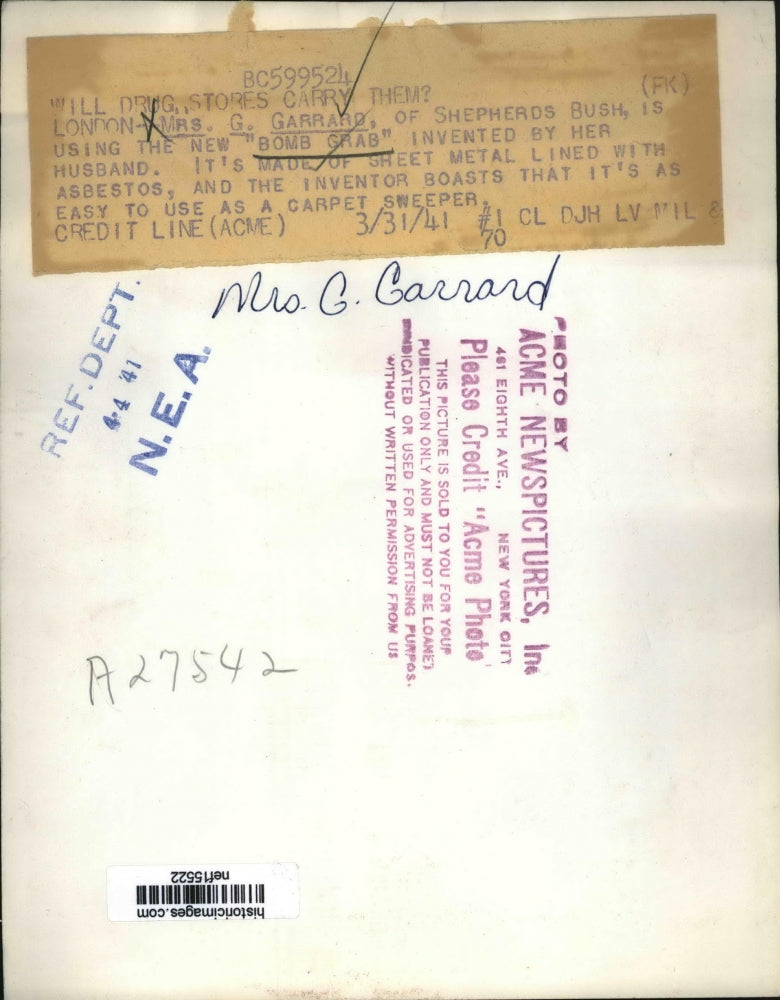 BC599524
WILL DRUG STORES CARRY THEM? (FK)
LONDON-MRS. G. GARRARD, OF SHEPHERDS BUSH, IS
USING THE NEW "BOMB GRAB" INVENTED BY HER
HUSBAND. IT'S MADE OF SHEET METAL LINED WITH
ASBESTOS, AND THE INVENTOR BOASTS THAT IT'S AS
EASY TO USE AS A CARPET SWEEPER.
CREDIT LINE (ACME) 3/31/41 #1 CL DJH LV MIL &
70
Mrs. G. Garrard
REF. DEPT.
4-4 '41
N.E.A.
PHOTO BY
ACME NEWSPICTURES, Inc
461 EIGHTH AVE., NEW YORK CITY
Please Credit "Acme Photo"
THIS PICTURE IS SOLD TO YOU FOR YOUR
PUBLICATION ONLY AND MUST NOT BE LOANED
SYNDICATED OR USED FOR ADVERTISING PURPOS.
WITHOUT WRITTEN PERMISSION FROM US
A27542
historicimages.com
nef15522